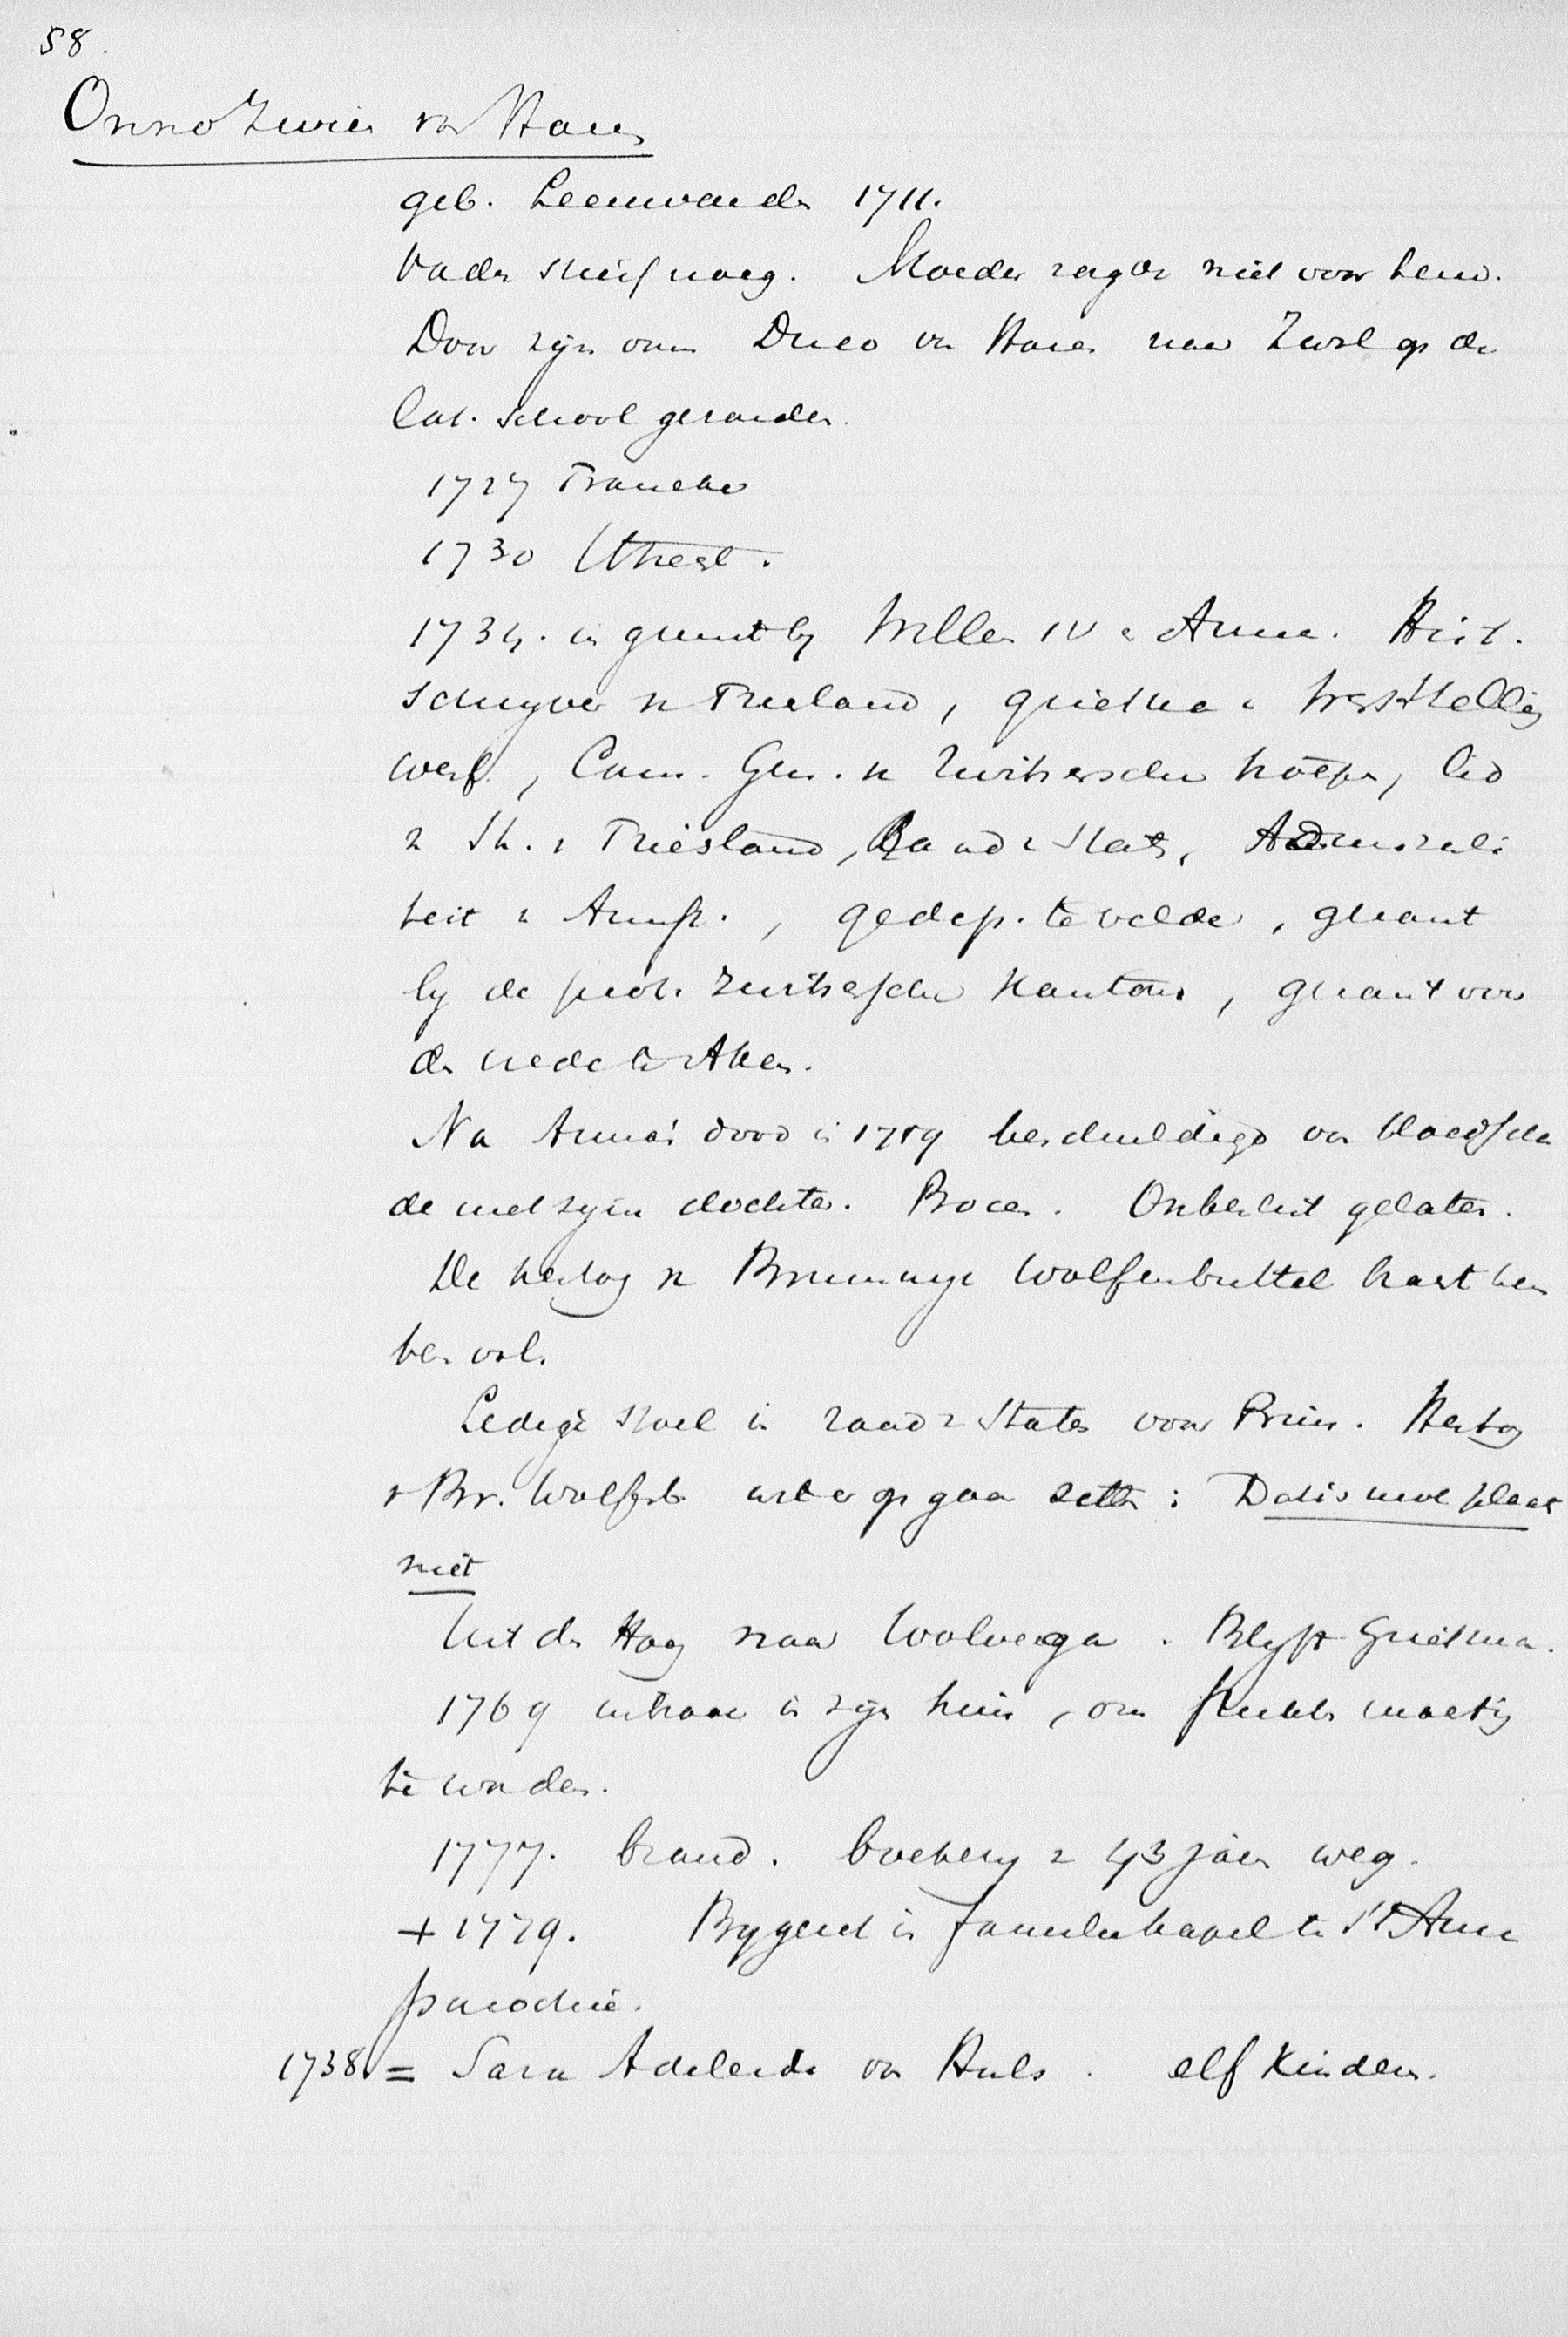 58.
Onno Zwier van Haren
geb. Leeuwarden 1711.
Vader stierf vroeg. Moeder zorgde niet voor hem.
Door zijn oom Duco van Haren naar Zwol op de
Lat. school gezonden.
1727 Franeker
1730 Utrecht.
1734. in gunst bij Willem IV en Anna. Hist.
schrijver v Friesland, grietman v Weststelling
werf, Com. Gen. v Zwitsersche troepen, lid
v St. v Friesland, Raad v State, Admirali
teit v Amst., gedep. te velde, gezant
bij de prot. Zwitsersche Kantons, gezant voor
de vrede te Aken.
Na Anna's dood in 1759 beschuldigd van bloedschan
de met zijn dochter. Proces. Onbeslist gelaten.
De hertog v Brunswijk Wolfenbuttel haat hem
Ledige stoel in raad v State voor Prins. Hertog
v Br. Wolfenb. wil er op gaan zitten: Dat is uwe plaats
niet
Uit den Haag naar Wolvega. Blijft Grietman.
1769 inbraak in zijn huis, om
te worden.
1777. brand. boekerij v 43 jaar weg.
+ 1779. Bijgezet in familiekapel te St Anna
parochie.
1738 = Sara Adeleide van Huls. elf Kinderen.